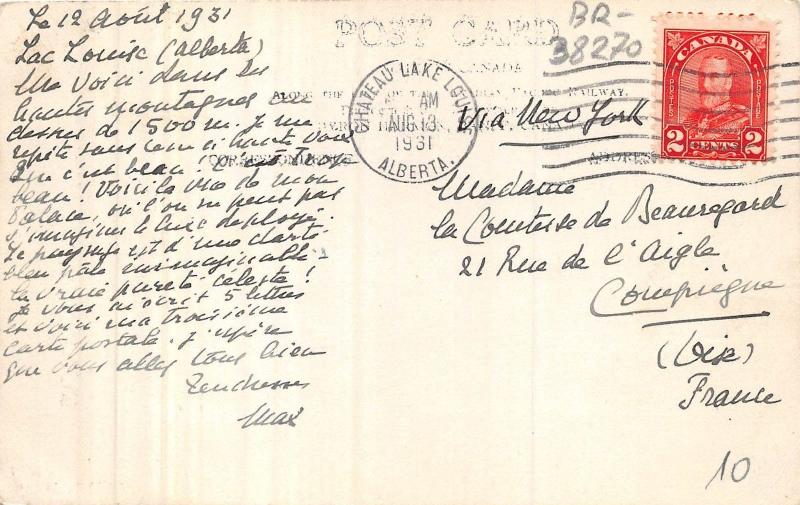 Le 12 Août 1931
Lac Louise (Alberta)
Me voici dans les
hautes montagnes au
dessus de 1500 m. Je me
répète sans cesse à haute voix
Que c'est beau!
beau! Voici la vue de mon
Palace, où l'on ne peut pas
s'imaginer le luxe déployé.
Le paysage est d'une clarté
bleu pâle inimaginable
la vraie pureté céleste!
Je vous ai écrit 5 lettres
et voici ma troisième
carte postale. J'espère
que vous allez tous bien
Tendresses
Max
POST CARD
BR-
38270
CANADA
ALONG THE RAILWAY.
CHATEAU LAKE LOUISE
AM
AUG 13
1931
ALBERTA.
CORRESPONDENCE
ADDRESS
CANADA
POSTES
POSTAGE
2 CENTS 2
Via New York
Madame
la Comtesse de Beauregard
21 Rue de l'Aigle
Compiègne
(Oise)
France
10